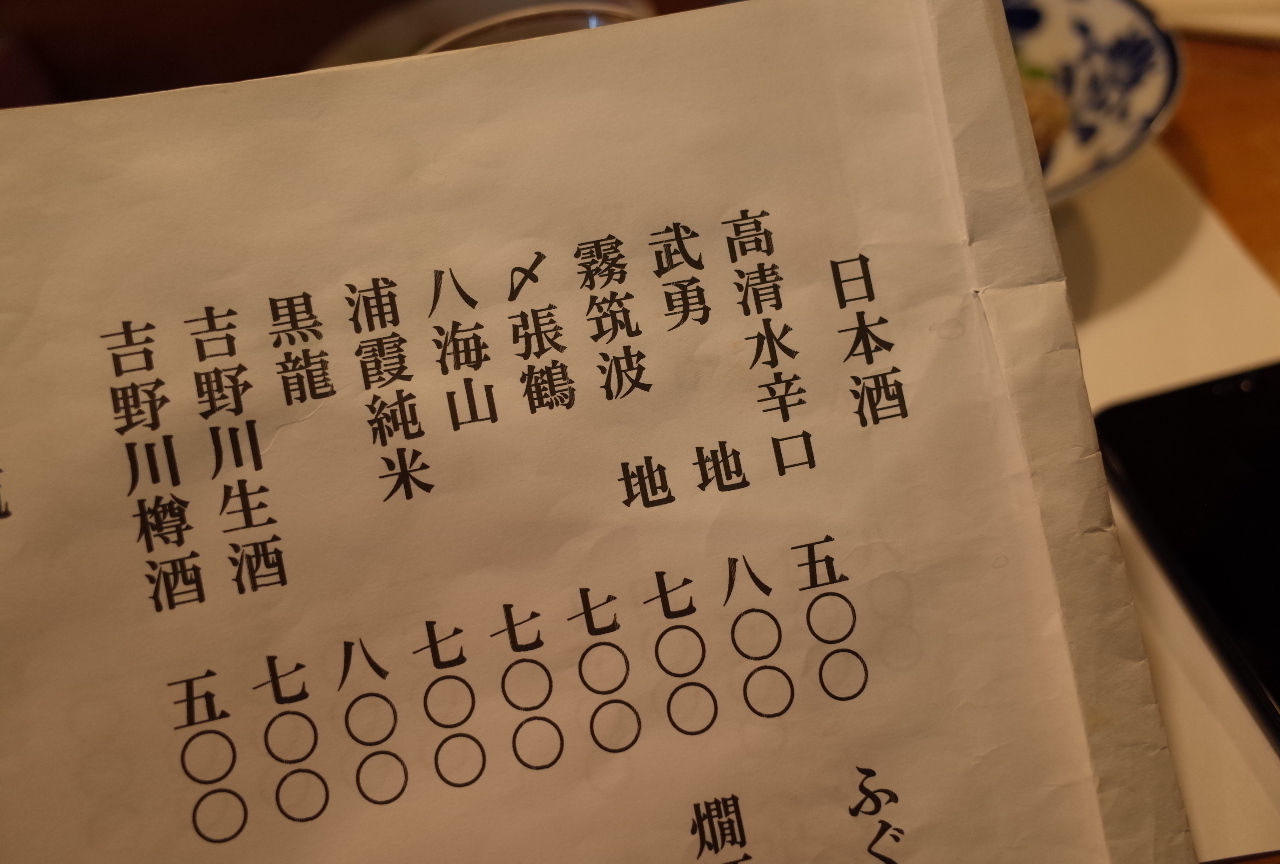 日本酒
高清水辛口 五〇〇
武勇 地 八〇〇
霧筑波 地 七〇〇
〆張鶴 七〇〇
八海山 七〇〇
浦霞純米 七〇〇
黒龍 八〇〇
吉野川生酒 七〇〇
吉野川樽酒 五〇〇
ふぐ
燗